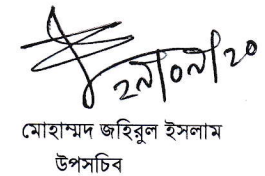 ২৭/০৭/২০
মোহাম্মদ জহিরুল ইসলাম
উপসচিব